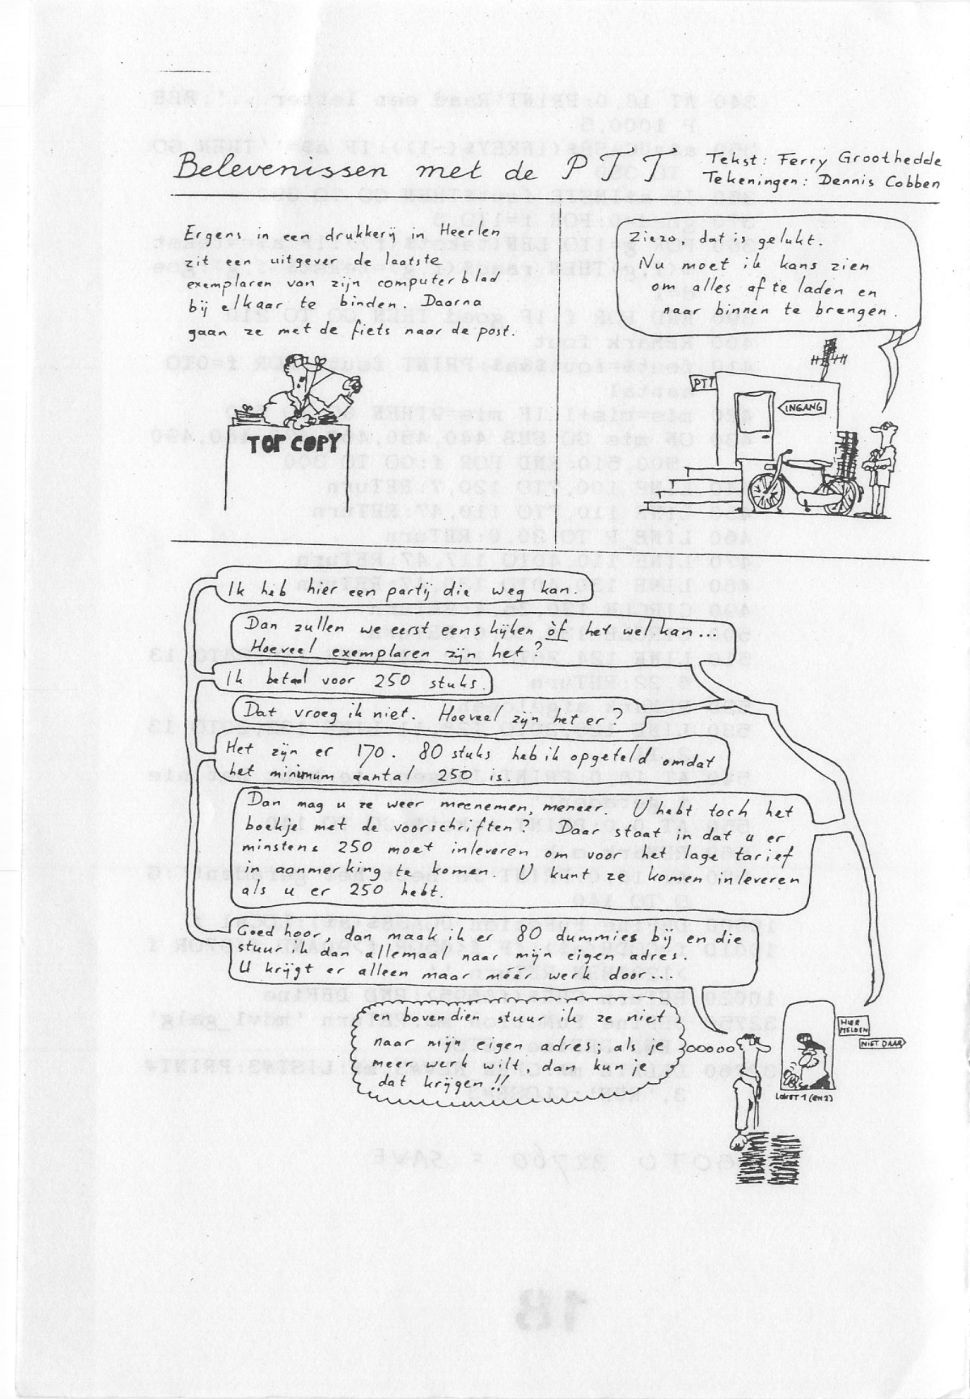 Belevenissen met de PTT
Tekst: Ferry Groothedde
Tekeningen: Dennis Cobben
Ergens in een drukkerij in Heerlen
zit een uitgever de laatste
exemplaren van zijn computerblad
bij elkaar te binden. Daarna
gaan ze met de fiets naar de post.
TOP COPY
Ziezo, dat is gelukt.
Nu moet ik kans zien
om alles af te laden en
naar binnen te brengen.
PTT
INGANG
Ik heb hier een partij die weg kan.
Dan zullen we eerst eens kijken òf het wel kan...
Hoeveel exemplaren zijn het?
Ik betaal voor 250 stuks.
Dat vroeg ik niet. Hoeveel zijn het er?
Het zijn er 170. 80 stuks heb ik opgeteld omdat
het minimum aantal 250 is.
Dan mag u ze weer meenemen, meneer U hebt toch het
boekje met de voorschriften? Daar staat in dat u er
minstens 250 moet inleveren om voor het lage tarief
in aanmerking te komen. U kunt ze komen inleveren
als u er 250 hebt.
Goed hoor, dan maak ik er 80 dummies bij en die
stuur ik dan allemaal naar mijn eigen adres.
U krijgt er alleen maar móér werk door...
en bovendien stuur ik ze niet
naar mijn eigen adres; als je
meer werk wilt, dan kun je
dat krijgen!!
HIER
MELDEN
NIET DAAR
LOKET 1 (EN 2)